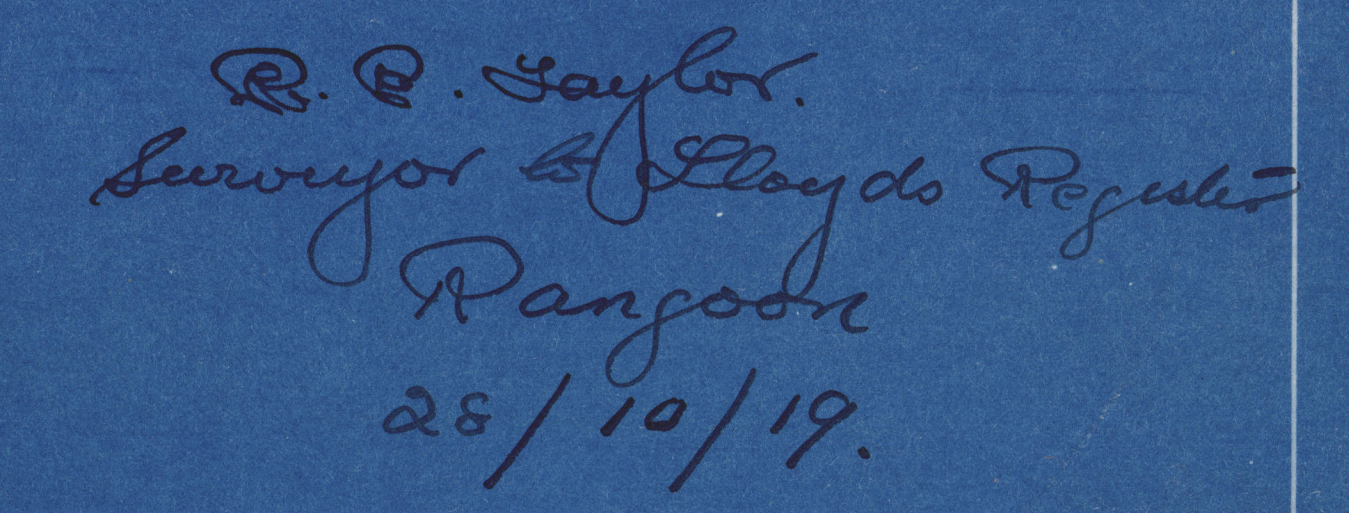 R. E. Taylor.
Surveyor to Lloyds Register
Rangoon
28/10/19.